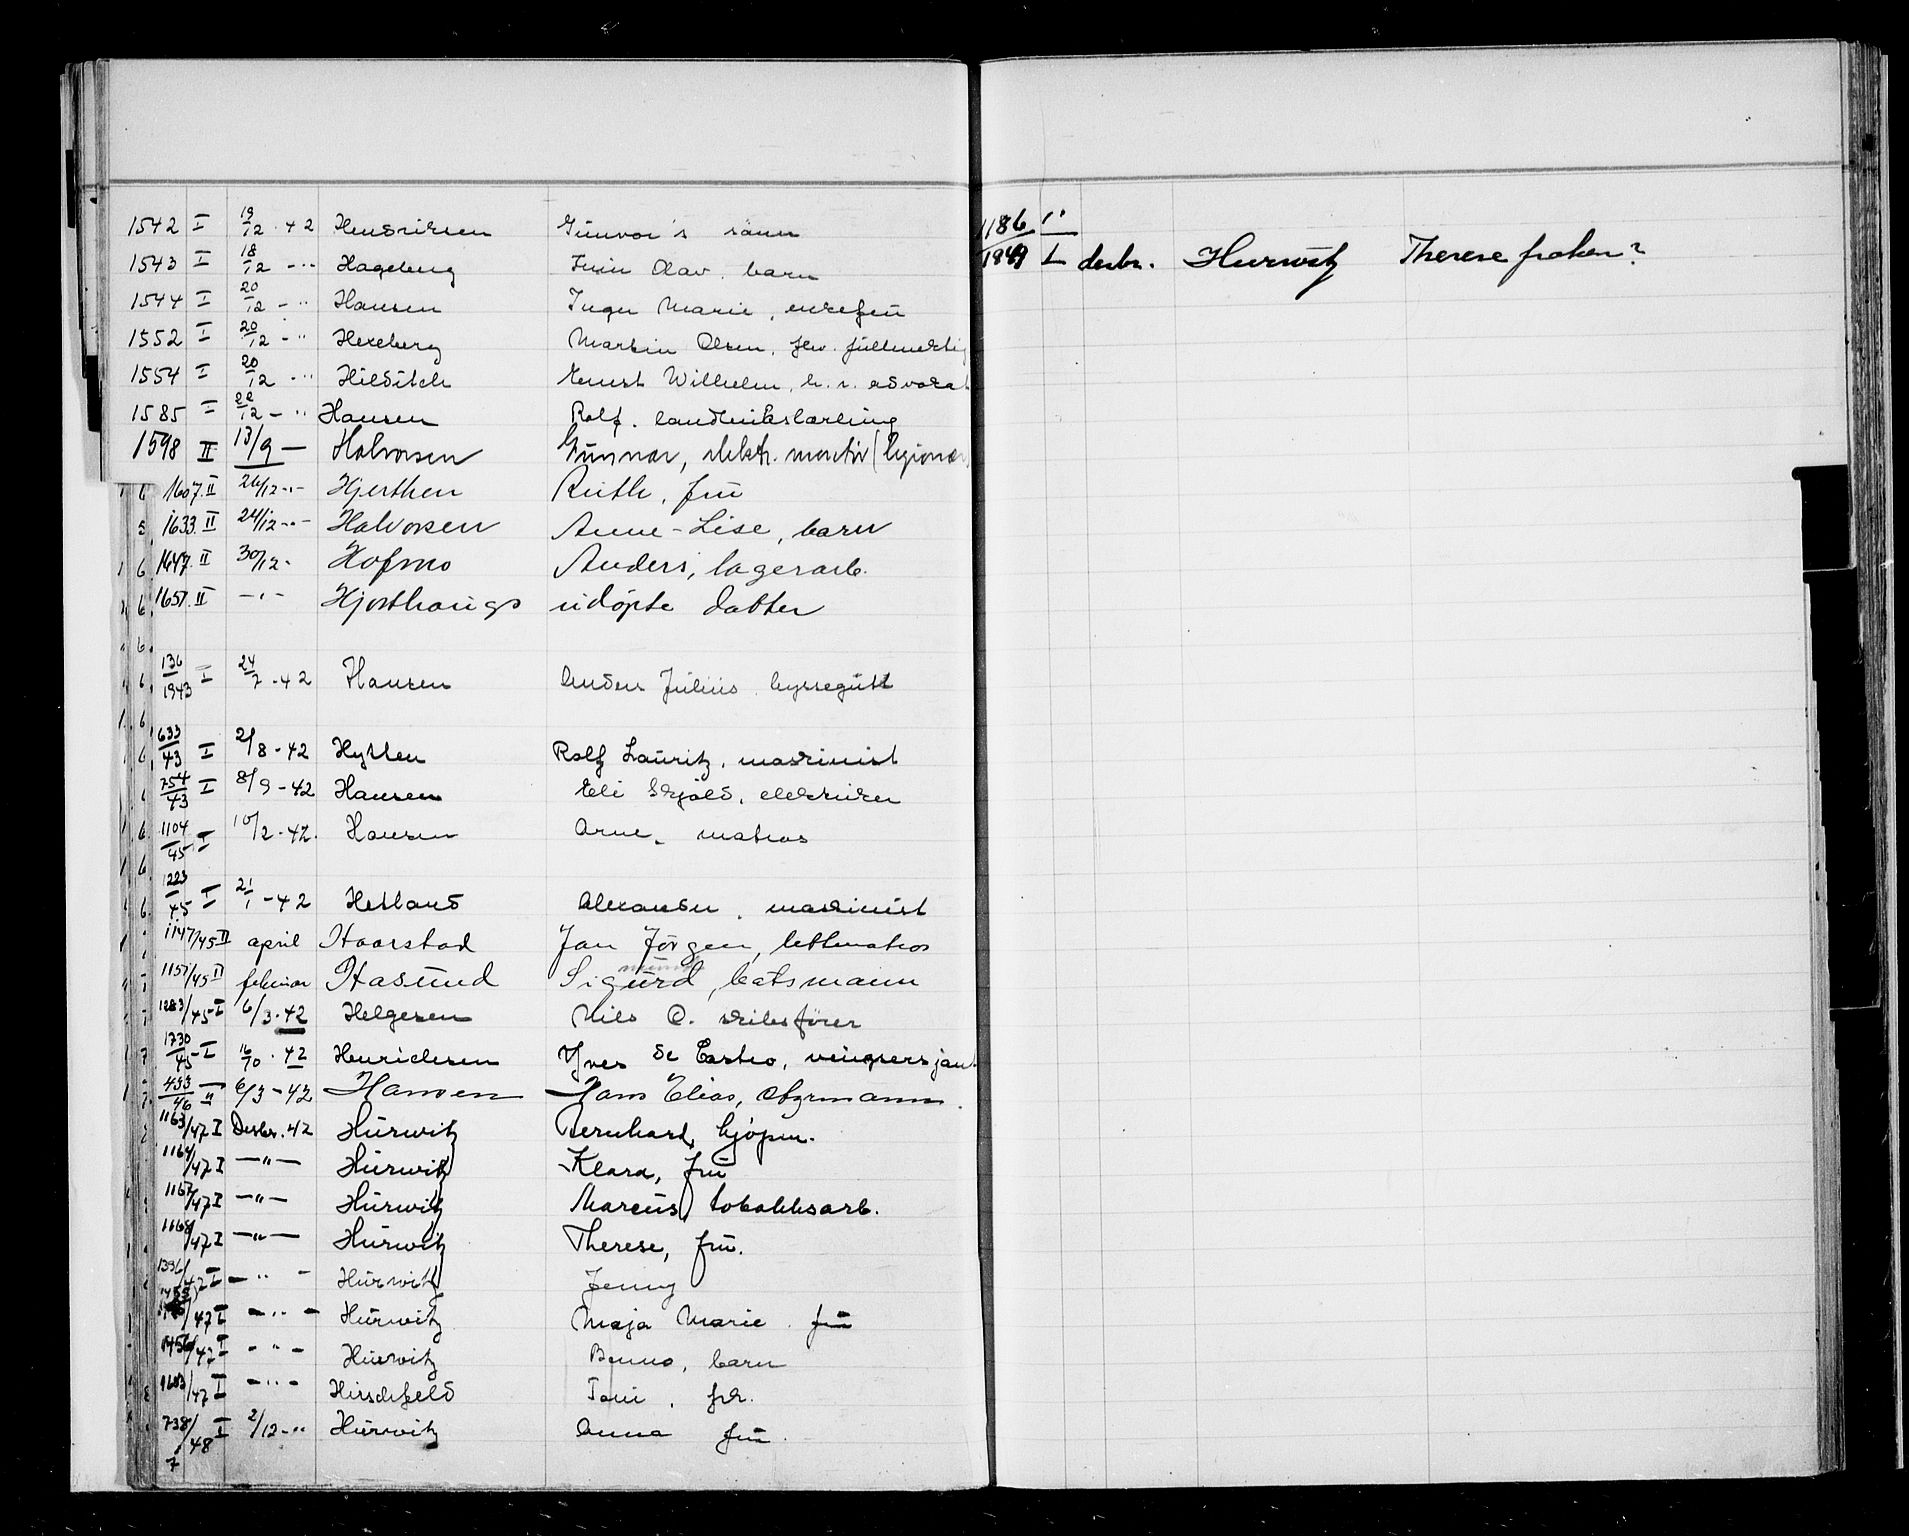 1542 I 19/12 - 42 Henriksen Gunvor's sønn
1543 I 18/12 - " Hageberg Olav, barn
1544 I 20/12 - " Hansen Inger Marie, enkefru
1552 I 20/12 - " Hexeberg Martin Olsen, fhv. fullmektig
1554 I 20/12 - " Hilditch Ernst Wilhelm, h. r. advokat
1585 I 22/12 - " Hansen Rolf, landbrukslærling
1598 II 13/9 - Halvorsen Gunnar, elektr. montør (legionær)
1607 II 26/12 - " - Hjerthen Ruth, fru
1633 II 24/12 - " - Halvorsen Anne-Lise, barn
1647 II 30/12 - Hofmo Anders, lagerarb.
1657 II - " - Hjorthaugs udøpte datter
136/1943 I 24/7 - 42 Hansen Anders Julius, byssegutt
633/43 I 2/8 - 42 Hytten Rolf Lauritz, maskinist
754/43 I 8/9 - 42 Hansen Eli Skjold, elektriker
1104/45 I 10/2 - 42 Hansen Arne, matros
1223/45 I 21/1 - 42 Hetland Alexander, maskinist
1147/45 II april Haarstad Jan Jørgen, lettmatros
1151/45 II februar Hasund Sigurd, båtsmann
1283/45 I 6/3 - 42 Helgesen Nils O. skibsfører
1730/45 I 16/10 - 42 Henrichsen Yves de Castro, vingsersjant
433/46 II 6/3 - 42 Hansen Hans Elias, styrmann
1163/47 I Desbr. 42 Hurwitz Bernhard, kjøpm.
1164/47 I - " - Hurwitz Klara, fru
1167/47 I - " - Hurwitz Marcus, tobakksarb.
1168/47 I - " - Hurwitz Therese, fru.
1396/47 I - " - Hurwitz Jenny
1455/47 I - " - Hurwitz Maja Marie fru
1456/47 I - " - Hurwitz Benno, barn
1603/47 I - " - Hirschfeld Toni, frk.
738/48 I 2/12 - " Hurwitz Anna fru
7
1186/1949 I desbr. Hurwitz Therese frøken?